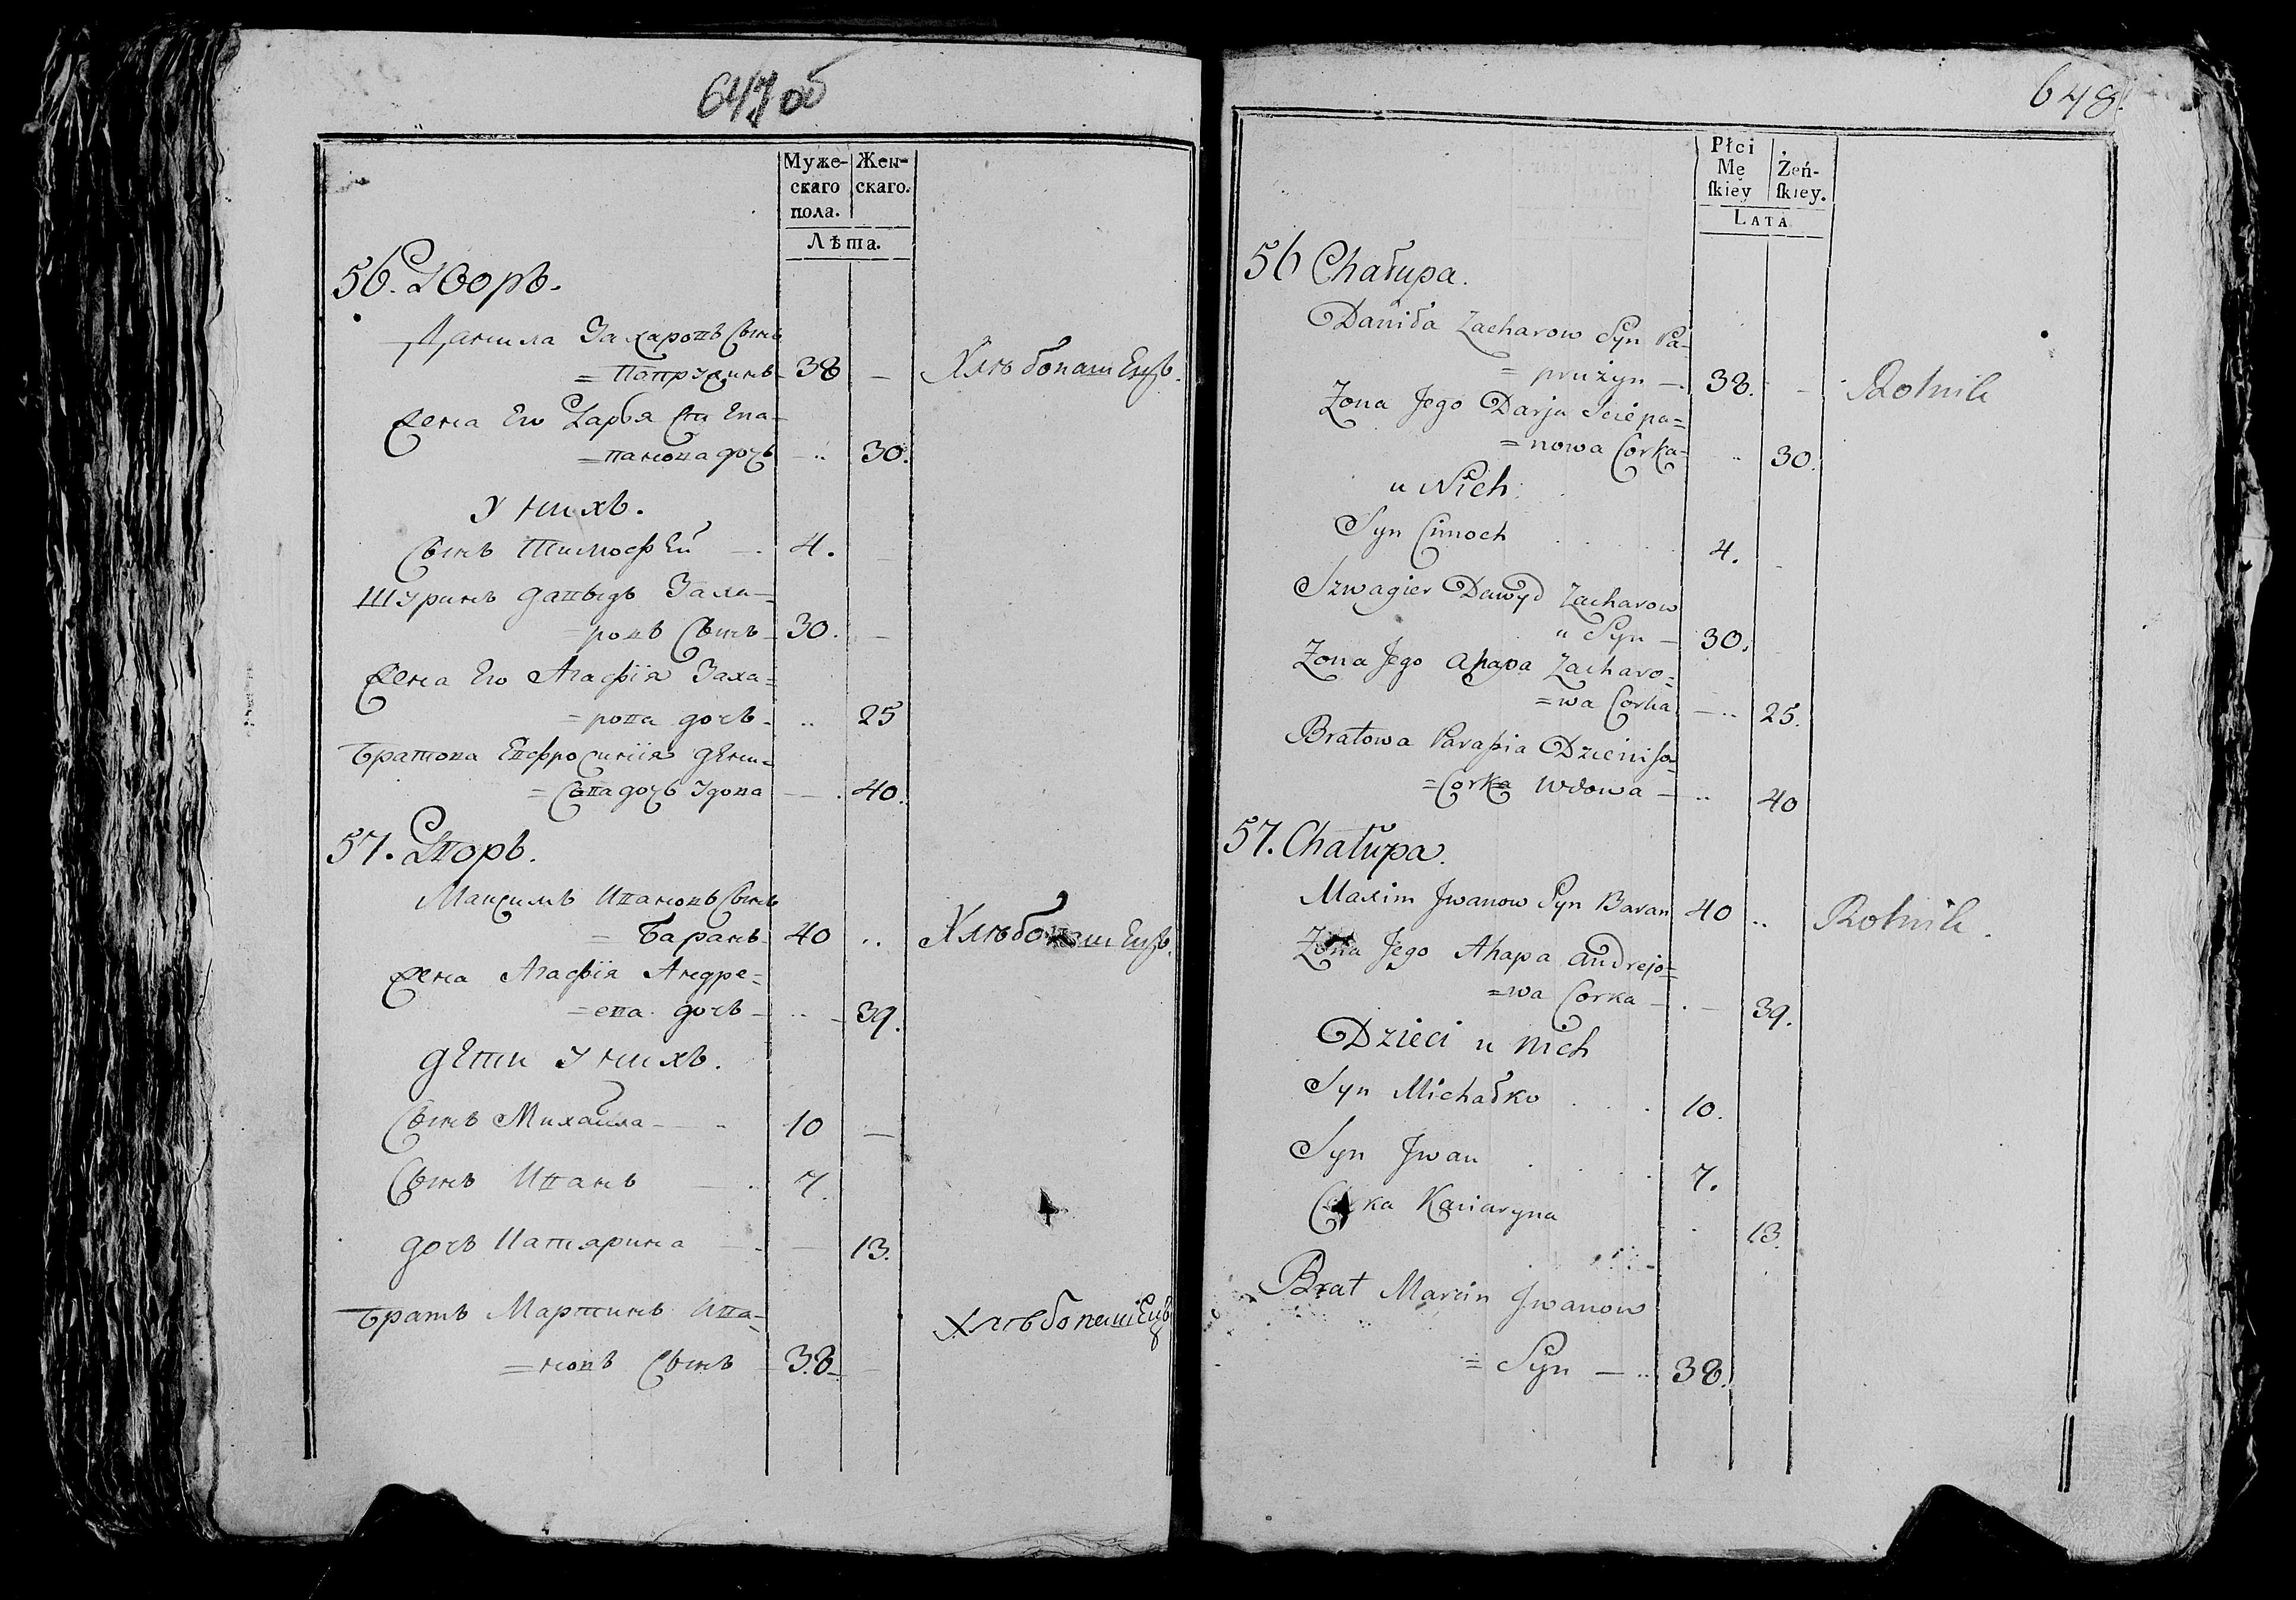 647 об
Муже-
скаго
пола.
Жен-
скаго.
Лѣта.
56. Дворъ.
Данила Захаровъ Сынъ
= Папружинъ - 38 —
Хлѣбопашецъ.
Жена Его Дарья Сте Епа-
= панова дочь — .. 30.
У нихъ.
Сынъ Тимофей — . 4. —
Шуринъ Давыдъ Заха-
= ровъ Сынъ - 30. —
Жена Его Агафія Заха=
= рова дочь - .. 25
Братова Евфросинія Дени=
= Сѣва дочь Удова — . 40.
57. Дворъ.
Максимъ Ивановъ Сынъ
= Баранъ - 40 ..
Хлѣбопашецъ.
Жена Агафія Андре=
= ева дочь - .. - 39.
Дети у нихъ.
Сынъ Михайла — .. 10 —
Сынъ Иванъ — . 7.
дочь Катярина — . — 13.
Братъ Мартинъ Ива=
= новъ Сынъ 38. —
Хлѣбопашецъ
648.
Płci
Mę
ſkiey
Żeń-
ſkiey.
LATA
56 Chałupa.
Daniła Zacharow Syn Pa-
= pruzyn — . 38. —
Rolnik
Zona Jego Darja Sciepa=
= nowa Corka - .. 30.
u Nich.
Syn Cimoch . . . . 4. -
Szwagier Dawyd Zacharow
" Syn — 30.
Zona Jego Ahapa Zacharo=
= wa Corka — .. 25.
Bratowa Parasia Dzieniso=
= Corka Wdowa — .. 40
57. Chałupa.
Maxim Jwanow Syn Baran 40 ..
Rolnik.
Zona Jego Ahapa Andrejo=
= wa Corka — . — 39.
Dzieci u nich
Syn Michałko . . . 10.
Syn Jwan . . . . 7.
Corka Kaciaryna . 13.
Brat Marcin Jwanow
= Syn — .. 38.